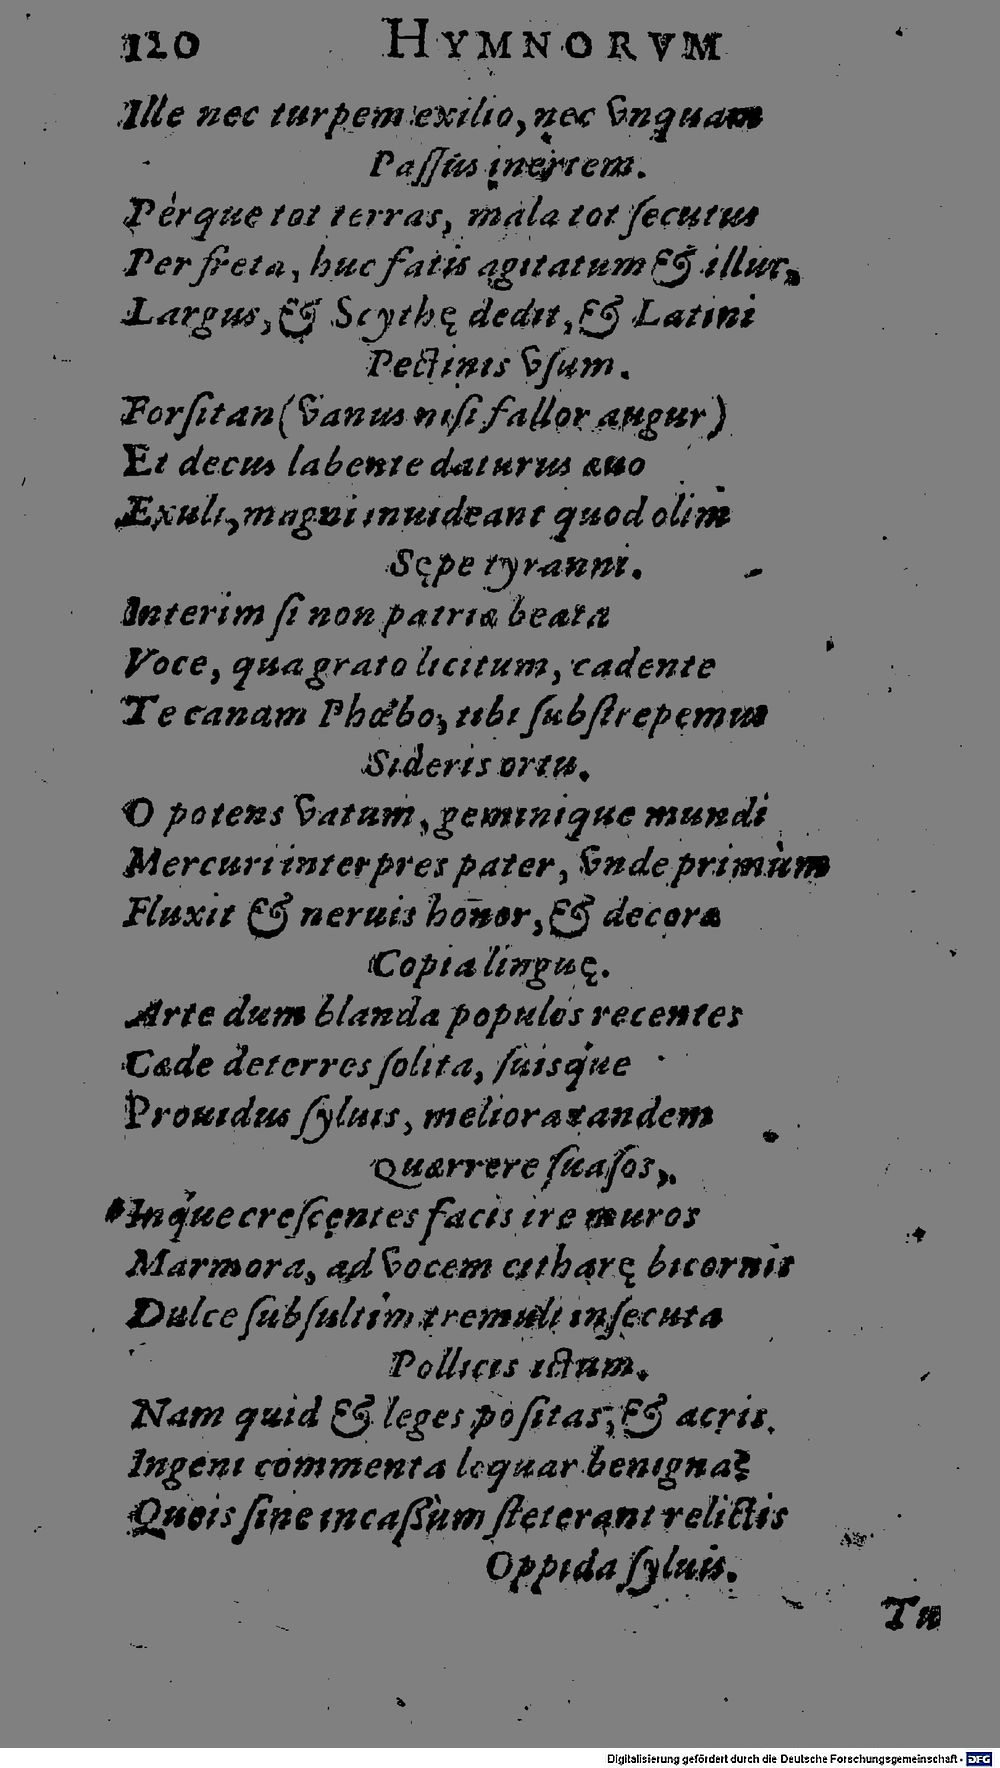 120 HYMNORVM
Ille nec turpem exilio, nec vnquam
Paſſus inertem.
Pérque tot terras, mala tot ſecutus
Per freta, huc fatis agitatum & illuc,
Largus, & Scythę dedit, & Latini
Pectinis vſum.
Forſitan (vanus niſi fallor augur)
Et decus labente daturus æuo
Exuli, magni inuideant quod olim
Sępe tyranni.
Interim ſi non patriæ beata
Voce, qua grato licitum, cadente
Te canam Phœbo, tibi ſubſtrepemus
Sideris ortu.
O potens vatum, geminique mundi
Mercuri interpres pater, vnde primùm
Fluxit & neruis honor, & decoræ
Copia linguę.
Arte dum blanda populos recentes
Cæde deterres ſolita, ſuisq́ue
Prouidus ſyluis, meliora tandem
Quærrere ſuaſos,
Inq́ue creſcentes facis ire muros
Marmora, ad vocem citharę bicornis
Dulce ſubſultim tremuli inſecuta
Pollicis ictum.
Nam quid & leges poſitas, & acris
Ingeni commenta loquar benigna?
Queis ſine incaßùm ſteterant relictis
Oppida ſyluis.
Tu
Digitalisierung gefördert durch die Deutsche Forschungsgemeinschaft - DFG